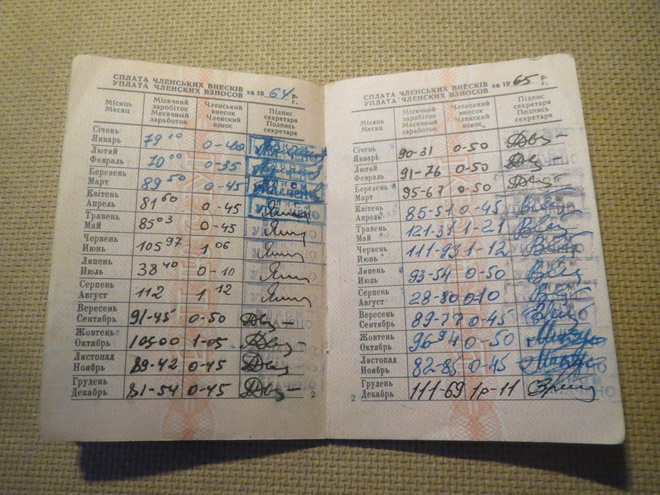 СПЛАТА ЧЛЕНСЬКИХ ВНЕСКІВ
УПЛАТА ЧЛЕНСКИХ ВЗНОСОВ за 1964 р. г.
Місяць Месяц
Місячний заробіток Месячный заработок
Членський внесок Членский взнос
Підпис секретаря Подпись секретаря
Січень Январь 79 10 0-40
Лютий Февраль 70 00 0-35
Березень Март 89 50 0-45
Квітень Апрель 81 60 0-45
Травень Май 85 03 0-45
Червень Июнь 105 97 1 06
Липень Июль 38 40 0-10
Серпень Август 112 1 12
Вересень Сентябрь 91-45 0-50
Жовтень Октябрь 105-00 1-05
Листопад Ноябрь 89-42 0-45
Грудень Декабрь 81-54 0-45
2
СПЛАТА ЧЛЕНСЬКИХ ВНЕСКІВ
УПЛАТА ЧЛЕНСКИХ ВЗНОСОВ за 1965 р. г.
Місяць Месяц
Місячний заробіток Месячный заработок
Членський внесок Членский взнос
Підпис секретаря Подпись секретаря
Січень Январь 90-31 0-50
Лютий Февраль 91-76 0-50
Березень Март 95-67 0-50
Квітень Апрель 85-51 0-45
Травень Май 121-31 1-21
Червень Июнь 111-93 1-12
Липень Июль 93-54 0-50
Серпень Август 28-80 0-10
Вересень Сентябрь 89-77 0-45
Жовтень Октябрь 96 94 0-50
Листопад Ноябрь 82-85 0-45
Грудень Декабрь 111-69 1р-11
2